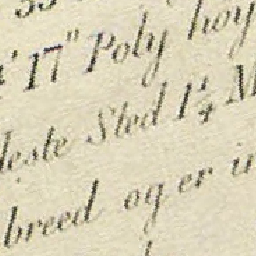 17" Poly hoy
leste Sted 1¼ M
breed og er i